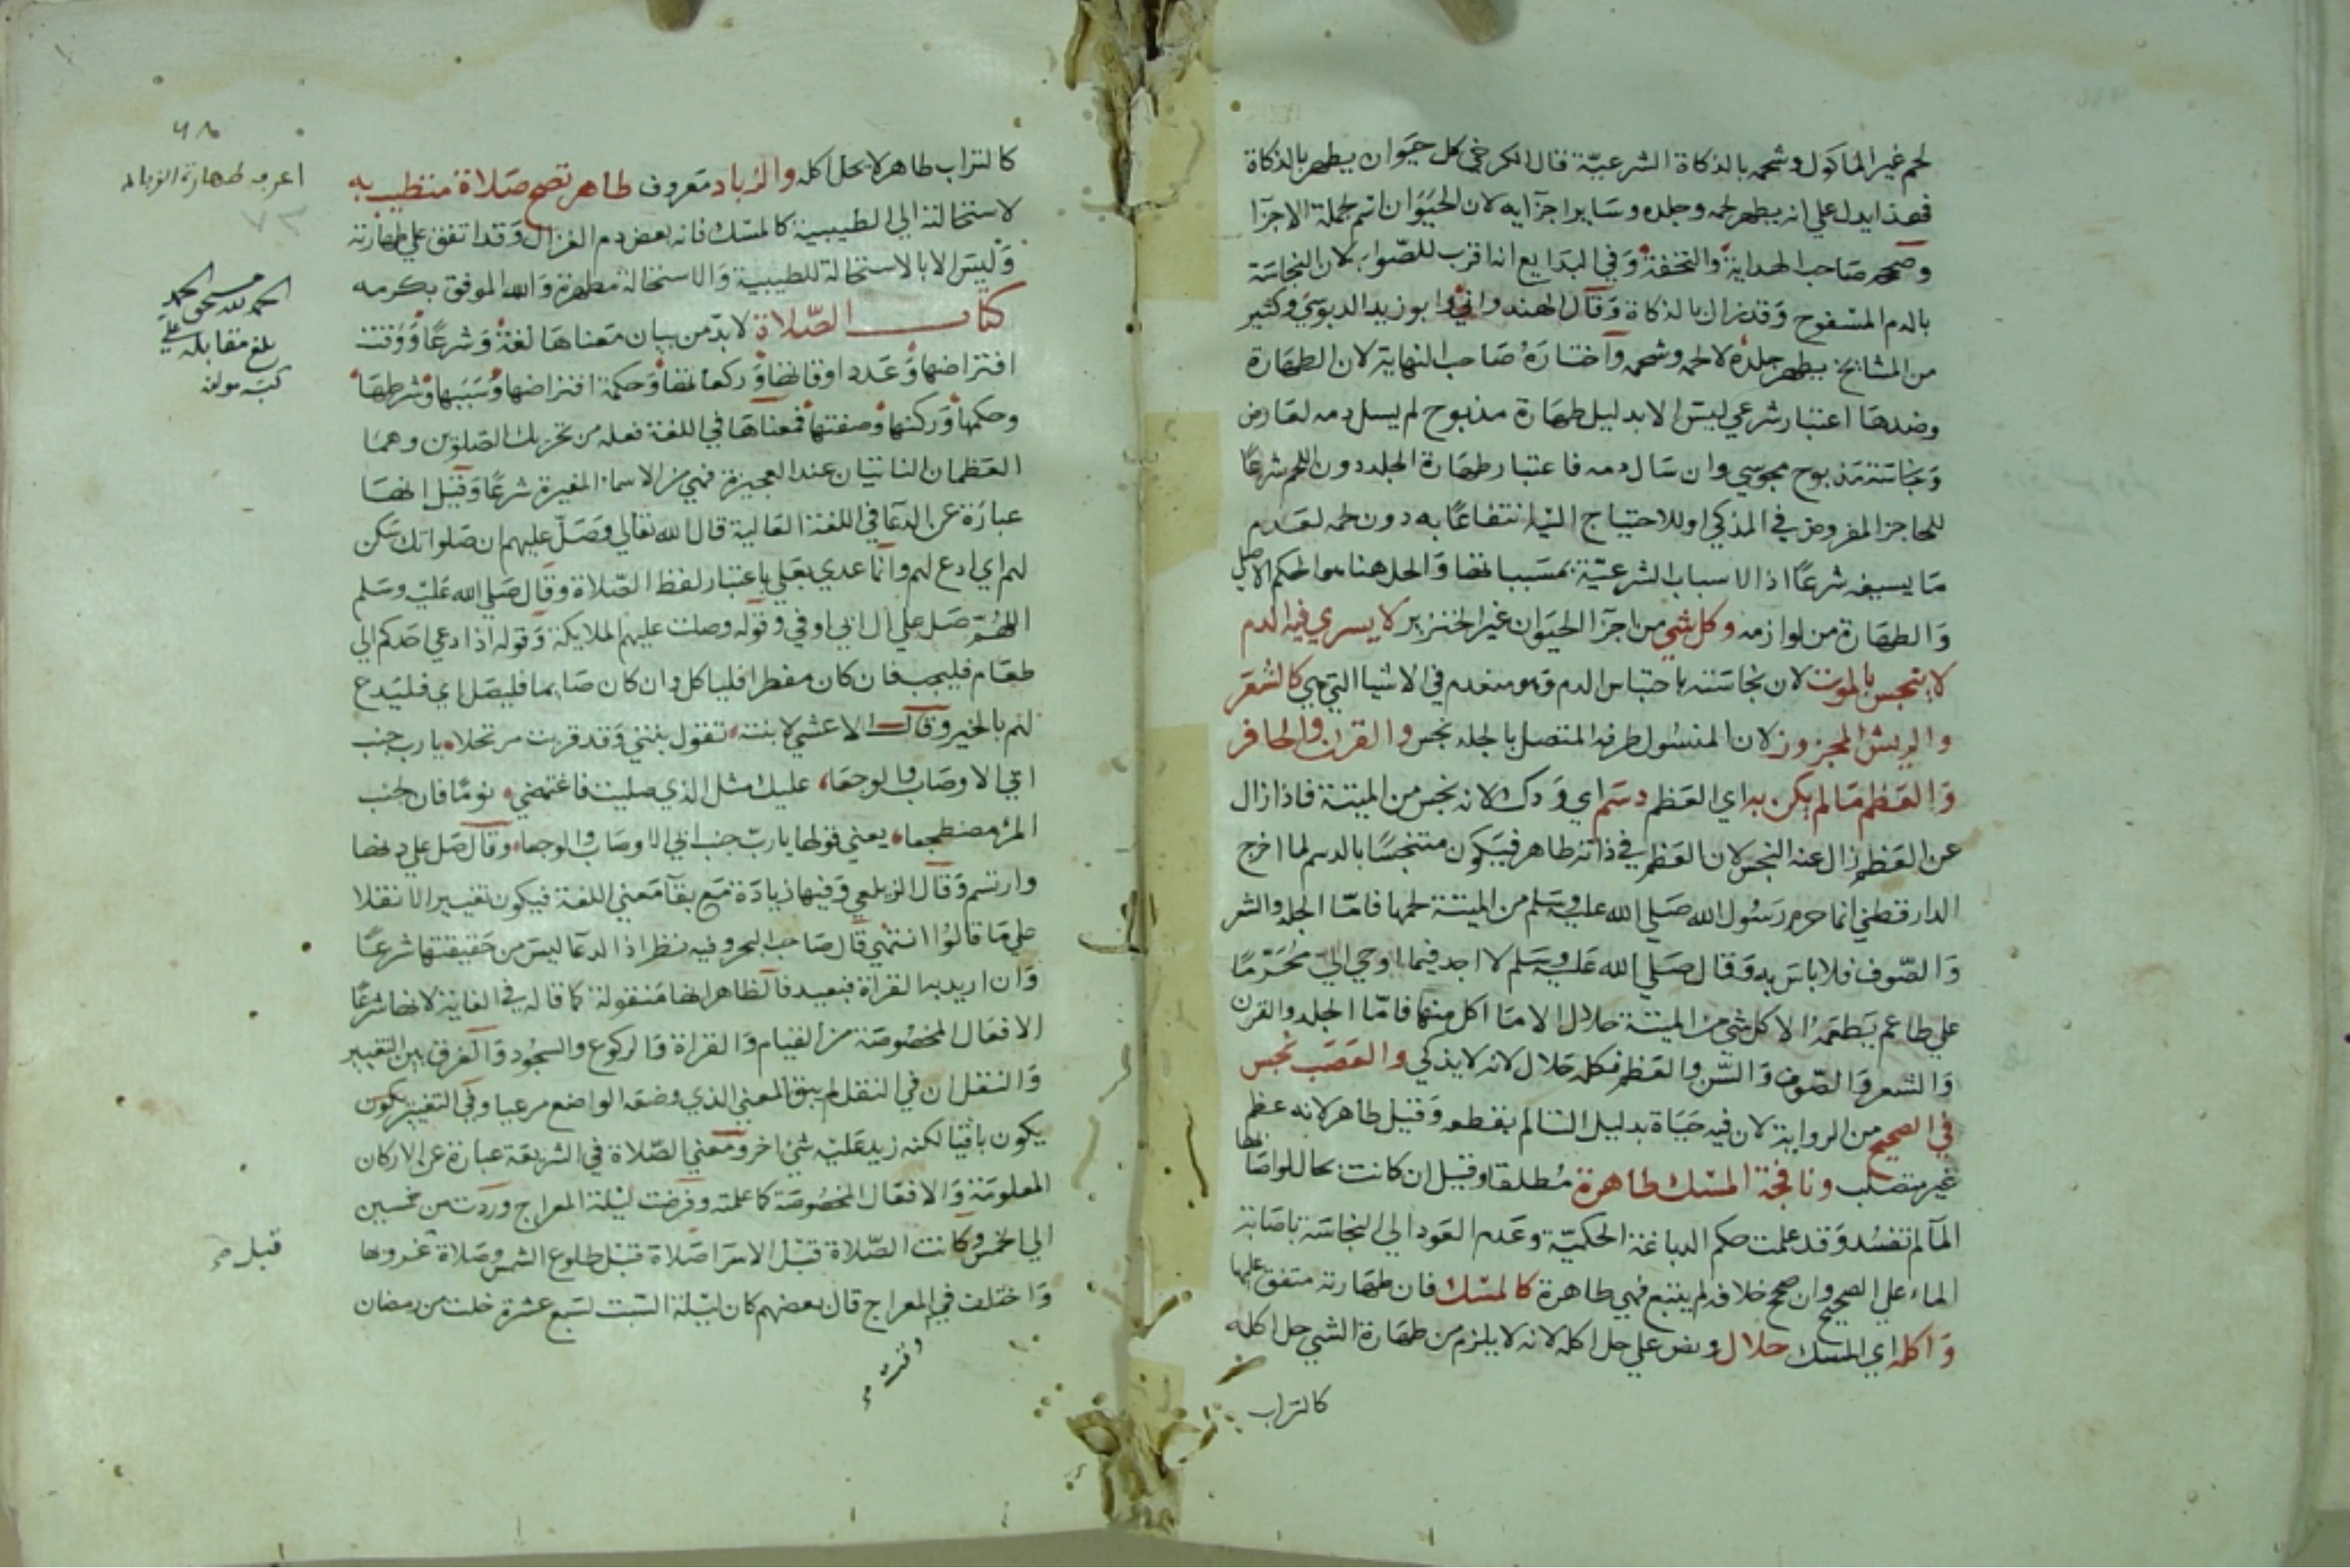 لحم غير الماكول وشحمه بالذكاة الشرعيّة قال الكرخي كل حيَوان يطهر بالذكاة
فهذا يدل علي انه يطهر لحمه وجلده وسَاير اجزايه لان الحيَوان اسم لجملة الاجزا
وصححه صَاحب الهداية والتحفة وَفي البدَايع انه اقرب للصّواب لان النجاسَة
بالدم المسْفوح وَقد زال بالذكاة وَقال الهندواني وابو زيد الدبوسي وكثير
من المشايخ يطهر جلده لا لحمه وشحمه وَاختارَهُ صَاحب النهاية لان الطهَارة
وضدهَا اعتبار شرعي ليسَ الا بدليل طهَارة مذبوح لم يسل دمه لعَارض
وَنجاسَة مَذبوح مجوسي وان سَال دمه فاعتبار طهَارة الجلد دون اللحم شرعًا
للحاجز المفروض في المذكي او للاحتياج اليْه انتفاعًا به دون لحمه لعَدم
مَا يسيغه شرعًا اذ الاسباب الشرعيّة بمسَبباتها وَالحل هنا هو الحكم الاصلي
وَالطهَارة من لوازمه وكل شي من اجزآ الحيَوان غير الخنزير لا يسري فيه الدم
لا ينجس بالموت لان نجاسَته باحتباس الدم وَهو منعدم في الاشيا التي هي كالشعَر
والريش المجزوز لان المنسُول طرفه المتصل بالجلد نجس والقرن والحافر
وَالعَظم مَا لم يكن به اي العَظم دسَم اي وَدك لانه نجس من الميتة فاذا زال
عن العَظم زال عنه النجس لان العَظم في ذاته طاهر فيَكون متنجسًا بالدسم لما اخرج
الدارقطني انما حرم رسُول الله صَلي الله عليه وسَلم من الميتة لحمها فامّا الجلد والشعر
وَالصّوف فلا باسَ به وَقال صَلي الله عَليه وسَلم لا اجد فيما اوحي اليّ مُحَرّمًا
علي طاعم يَطعمهُ الا كل شي من الميتَة حلال الا مَا اكل منها فامّا الجلد والقرن
وَالشعر وَالصّوف وَالسّن والعَظم فكله حَلال لانه لا يذكي والعَصَب نجس
في الصحيح من الرواية لان فيه حَيَاة بدليل التالم بقطعه وَقيل طاهر لانه عظم
غير متصلب ونافجة المسْك طاهرة مُطلقا وقيل ان كانت بحال لو اصَابها
المآ لم تفسُد وَقد علمت حكم الدباغة الحكميّة وعَدم العَود الي النجاسَة باصَابة
الماء علي الصحيح وان صحح خلافه لم يتبع فهي طاهرة كالمسْك فان طهَارته متفق عليها
وَاكله اي المسك حلال ونص علي حل اكله لانه لا يلزم من طهَارة الشي حل اكله
كالتراب
٦٨
كالتراب طاهر لا يحل اكله والزباد مَعروف طاهر تصح صَلاة متطيب به
لاستحالته الي الطيبية كالمسْك فانه بعض دم الغزال وَقد اتفق علي طهارته
وَليسَ الا بالاستحالة للطيبية وَالاستحالة مطهرة وَالله الموفق بكرمه
كتاب الصّلاة لا بدّ من بيان مَعناهَا لغة وَشرعًا وَوَقت
افتراضها وَعَدد اوقاتها وَركعاتها وَحكمة افتراضها وَسَبَبها وَشرطهَا
وحكمها وَركنها وصفتها فمَعناهَا في اللغة فعله من تحريك الصّلوَين وهمَا
العَظمان الناتيان عند العجيزة فهي من الاسمآ المغيرة شرعًا وَقيل انها
عبارَة عن الدعَآ في اللغة العَالية قال الله تعَالي وَصَلّ عليهم ان صَلواتك سَكن
لهم اي ادع لهم وَانما عدي بعَلي باعتبار لفظ الصّلاة وقال صَلي الله عَليْه وسَلم
اللهمّ صَل علي ال ابي اوفي وقوْله وصلت عليهم الملايكة وَقوله اذا دعي احدكم الي
طعَام فليجب فان كان مفطرا فلياكل وان كان صَايما فليصَل اي فليَدع
لهم بالخير وقال الاعشي لابنته تقول بنتي وَقد قربت مرتحلا يا رب جنب
ابي الاوصَاب والوجعَا عليك مثل الذي صليت فاغتمضي نومًا فان لجنب
المرء مضطجعا يعني قولها يا ربّ جنب ابي الاوصَاب والوجعا وقال صَل علي دنها
وارتسم وَقال الزيلعي وَفيها زيادَة مَع بقآ مَعني اللغة فيكون تغييرا لا نقلا
علي مَا قالوُا انتهي قال صَاحب البحر وفيه نظر اذ الدعَآ ليسَ من حَقيقتها شرعًا
وَان اريد به القراة فبَعيد فالظاهر انها مَنقولة كما قاله في الغاية لانها شرعًا
الافعَال المخصُوصَة من القيام وَالقراة وَالركوع والسجُود وَالفرق بين التغيير
وَالنقل ان في النقل لم يبق المعني الذي وضعَه الواضع مرعيا وفي التغيير يكون
يكون باقيا لكنه زيد عَليْه شيْ اخر ومَعني الصّلاة في الشريعَة عبارة عن الاركان
المعلومَة وَالافعَال المخصُوصَة كما علمته وفرضت ليْلة المعراج وردت من خمسين
الي الخمس وكانت الصّلاة قبْل الاسرَا صَلاة قبْل طلوع الشمس وصَلاة غروبها
وَاختلف في المعراج قال بعضهم كان ليْلة السّبت لسَبع عشرة خلت من رمضان
اعرف طهارة الزباد
الحمد لله مستحق الحمد
بلغ مقابلة علي
كتبه مولفه
قبل صح
وقت صح